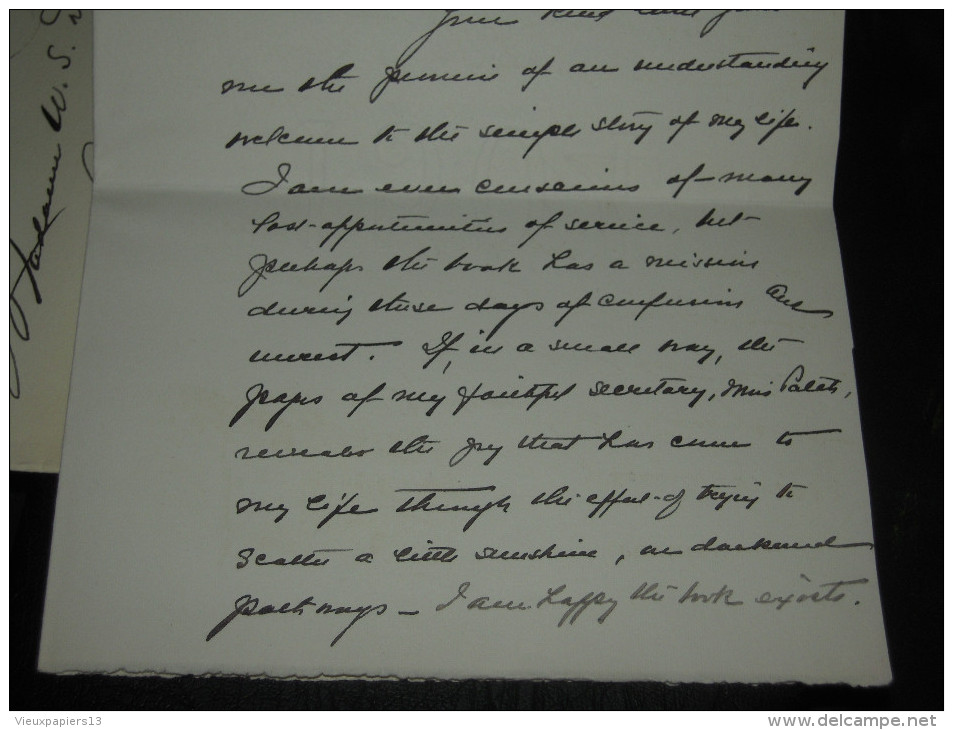 Your kind
me the promise of an understanding
welcome to the simple story of my life.
I am even conscious of many
lost opportunities of service, but
perhaps the book has a mission
during these days of confusion and
unrest. If, in a small way, the
pages of my faithful secretary, Miss
reveals the joy that has come to
my life through the effort of trying to
scatter a little sunshine, on darkened
pathways — I am happy the book exists.
W. S.
Vieuxpapiers13
www.delcampe.net